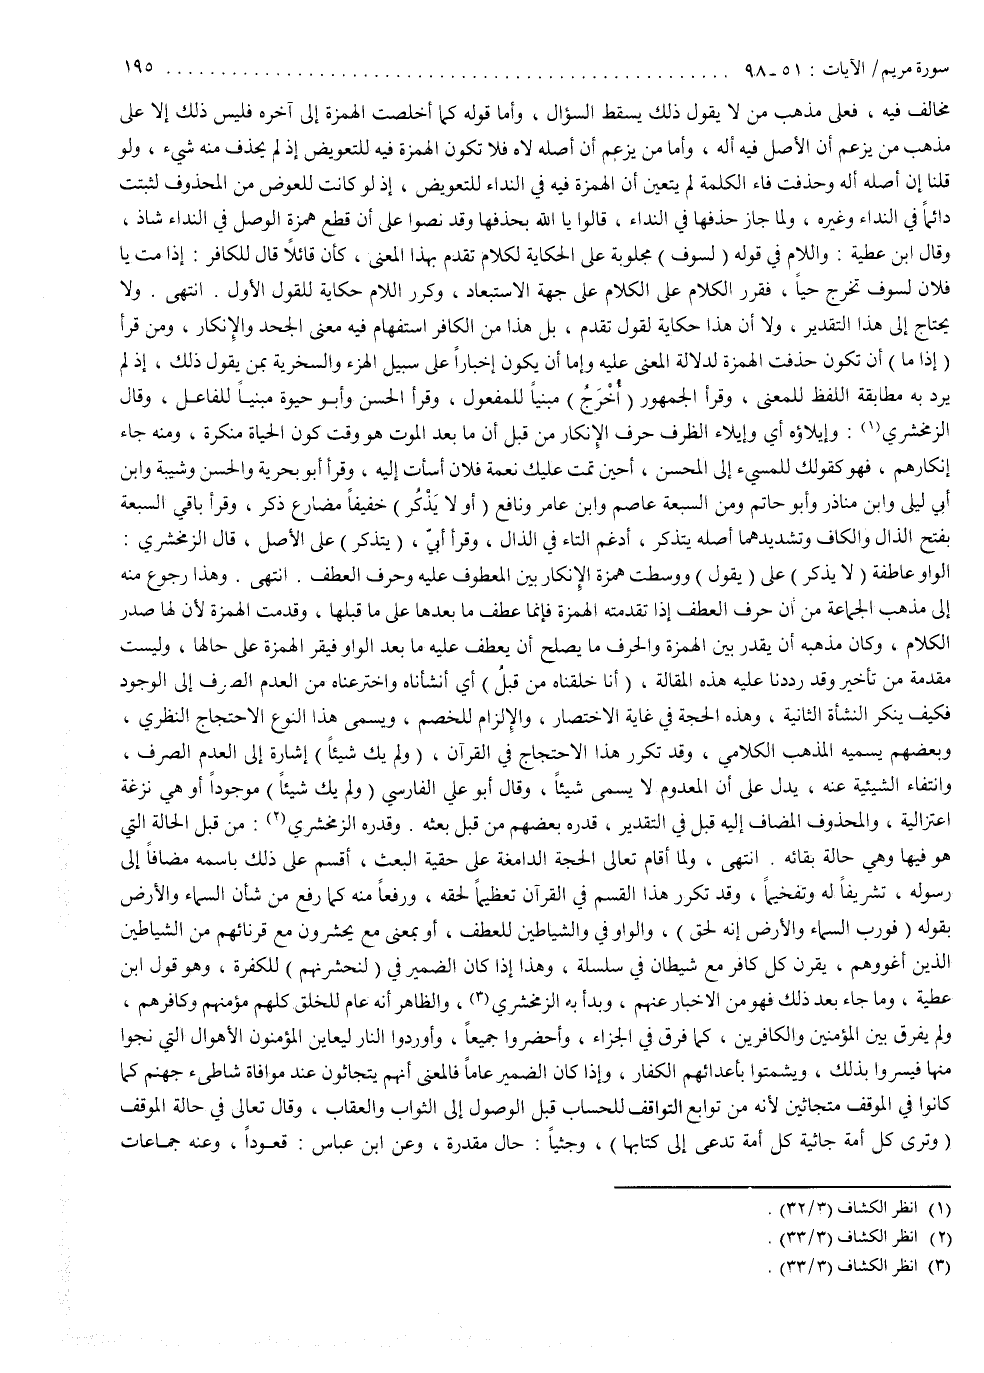 سورة مريم/ الآيات : ٥١ ـ ٩٨ ........................................................ ١٩٥
مخالف فيه ، فعلى مذهب من لا يقول ذلك يسقط السؤال ، وأما قوله كما أخلصت الهمزة إلى آخره فليس ذلك إلا على
مذهب من يزعم أن الأصل فيه أله ، وأما من يزعم أن أصله لاه فلا تكون الهمزة فيه للتعويض إذ لم يحذف منه شيء ، ولو
قلنا إن أصله أله وحذفت فاء الكلمة لم يتعين أن الهمزة فيه في النداء للتعويض ، إذ لو كانت للعوض من المحذوف لثبتت
دائماً في النداء وغيره ، ولما جاز حذفها في النداء ، قالوا يا الله بحذفها وقد نصوا على أن قطع همزة الوصل في النداء شاذ ،
وقال ابن عطية : واللام في قوله ( لسوف ) مجلوبة على الحكاية لكلام تقدم بهذا المعنى ، كأن قائلاً قال للكافر : إذا مت يا
فلان لسوف تخرج حياً ، فقرر الكلام على الكلام على جهة الاستبعاد ، وكرر اللام حكاية للقول الأول . انتهى . ولا
يحتاج إلى هذا التقدير ، ولا أن هذا حكاية لقول تقدم ، بل هذا من الكافر استفهام فيه معنى الجحد والإنكار ، ومن قرأ
( إذا ما ) أن تكون حذفت الهمزة لدلالة المعنى عليه وإما أن يكون إخباراً على سبيل الهزء والسخرية بمن يقول ذلك ، إذ لم
يرد به مطابقة اللفظ للمعنى ، وقرأ الجمهور ( أُخْرَجُ ) مبنياً للمفعول ، وقرأ الحسن وأبو حيوة مبنياً للفاعل ، وقال
الزمخشري(١) : وإيلاؤه أي وإيلاء الظرف حرف الإنكار من قبل أن ما بعد الموت هو وقت كون الحياة منكرة ، ومنه جاء
إنكارهم ، فهو كقولك للمسيء إلى المحسن ، أحين تمت عليك نعمة فلان أسأت إليه ، وقرأ أبو بحرية والحسن وشيبة وابن
أبي ليلى وابن مناذر وأبو حاتم ومن السبعة عاصم وابن عامر ونافع ( أو لا يَذْكُر ) خفيفاً مضارع ذكر ، وقرأ باقي السبعة
بفتح الذال والكاف وتشديدهما أصله يتذكر ، أدغم التاء في الذال ، وقرأ أبيّ ، ( يتذكر ) على الأصل ، قال الزمخشري :
الواو عاطفة ( لا يذكر ) على ( يقول ) ووسطت همزة الإنكار بين المعطوف عليه وحرف العطف . انتهى . وهذا رجوع منه
إلى مذهب الجماعة من أن حرف العطف إذا تقدمته الهمزة فإنما عطف ما بعدها على ما قبلها ، وقدمت الهمزة لأن لها صدر
الكلام ، وكان مذهبه أن يقدر بين الهمزة والحرف ما يصلح أن يعطف عليه ما بعد الواو فيقر الهمزة على حالها ، وليست
مقدمة من تأخير وقد رددنا عليه هذه المقالة ، ( أنا خلقناه من قبلُ ) أي أنشأناه واخترعناه من العدم الصرف إلى الوجود
فكيف ينكر النشأة الثانية ، وهذه الحجة في غاية الاختصار ، والإلزام للخصم ، ويسمى هذا النوع الاحتجاج النظري ،
وبعضهم يسميه المذهب الكلامي ، وقد تكرر هذا الاحتجاج في القرآن ، ( ولم يك شيئاً ) إشارة إلى العدم الصرف ،
وانتفاء الشيئية عنه ، يدل على أن المعدوم لا يسمى شيئاً ، وقال أبو علي الفارسي ( ولم يك شيئاً ) موجوداً أو هي نزغة
اعتزالية ، والمحذوف المضاف إليه قبل في التقدير ، قدره بعضهم من قبل بعثه . وقدره الزمخشري(٢) : من قبل الحالة التي
هو فيها وهي حالة بقائه . انتهى ، ولما أقام تعالى الحجة الدامغة على حقية البعث ، أقسم على ذلك باسمه مضافاً إلى
رسوله ، تشريفاً له وتفخيماً ، وقد تكرر هذا القسم في القرآن تعظيماً لحقه ، ورفعاً منه كما رفع من شأن السماء والأرض
بقوله ( فورب السماء والأرض إنه لحق ) ، والواو في والشياطين للعطف ، أو بمعنى مع يحشرون مع قرنائهم من الشياطين
الذين أغووهم ، يقرن كل كافر مع شيطان في سلسلة ، وهذا إذا كان الضمير في ( لنحشرنهم ) للكفرة ، وهو قول ابن
عطية ، وما جاء بعد ذلك فهو من الاخبار عنهم ، وبدأ به الزمخشري(٣) ، والظاهر أنه عام للخلق كلهم مؤمنهم وكافرهم ،
ولم يفرق بين المؤمنين والكافرين ، كما فرق في الجزاء ، وأحضروا جميعاً ، وأوردوا النار ليعاين المؤمنون الأهوال التي نجوا
منها فيسروا بذلك ، ويشمتوا بأعدائهم الكفار ، وإذا كان الضمير عاماً فالمعنى أنهم يتجاثون عند موافاة شاطىء جهنم كما
كانوا في الموقف متجاثين لأنه من توابع التواقف للحساب قبل الوصول إلى الثواب والعقاب ، وقال تعالى في حالة الموقف
( وترى كل أمة جاثية كل أمة تدعى إلى كتابها ) ، وجثياً : حال مقدرة ، وعن ابن عباس : قعوداً ، وعنه جماعات
(١) انظر الكشاف (٣/ ٣٢) .
(٢) انظر الكشاف (٣/ ٣٣) .
(٣) انظر الكشاف (٣/ ٣٣) .